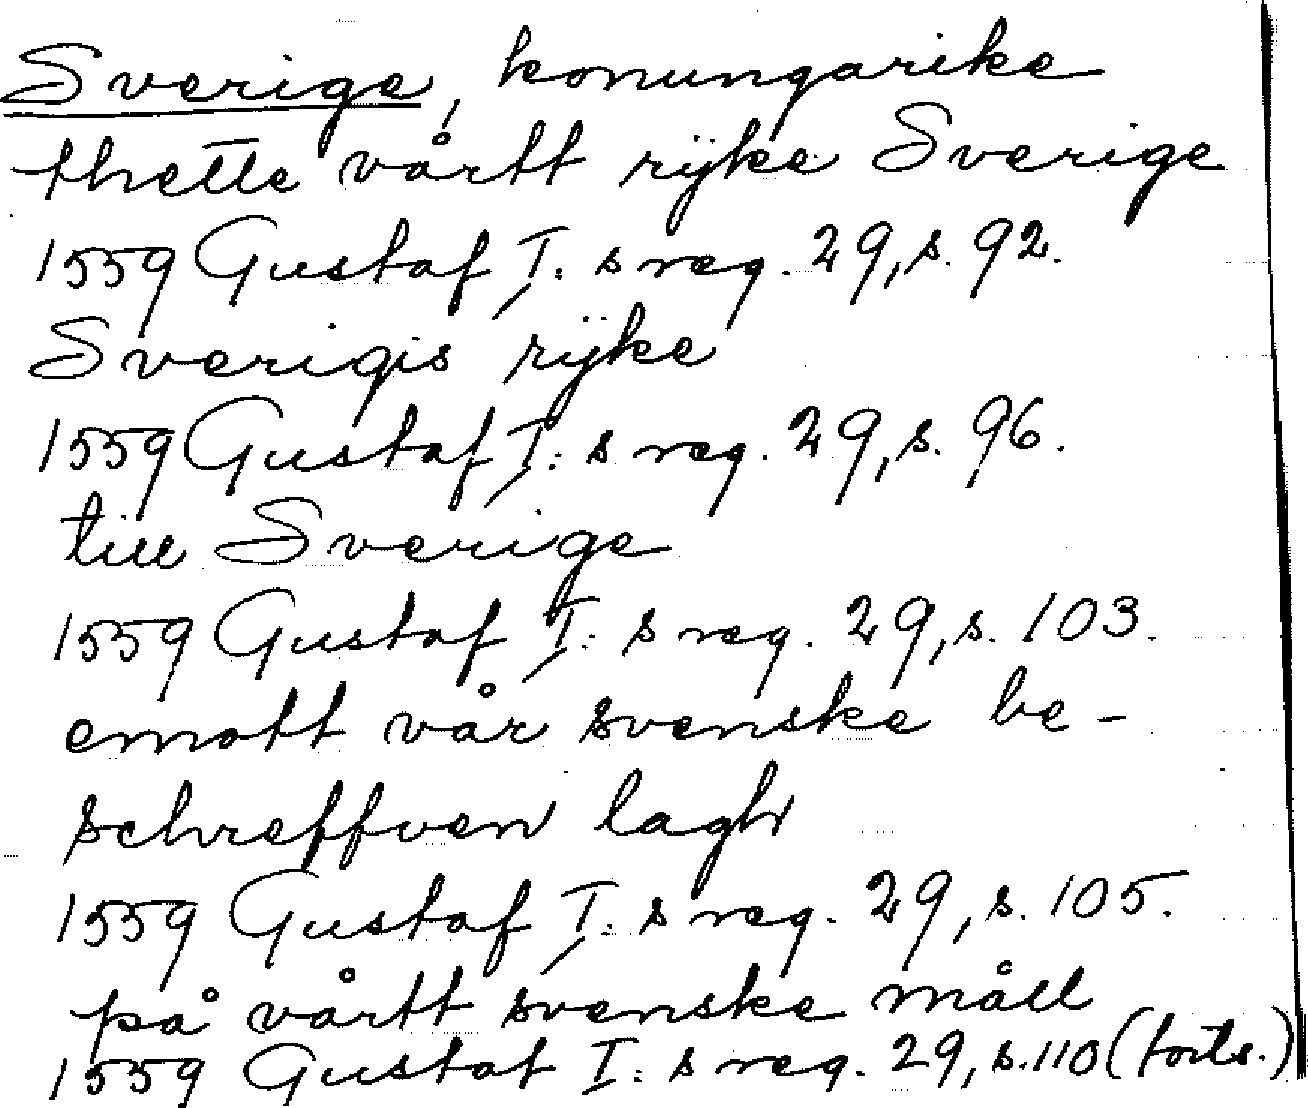 Sverige, konungarike
thette vårtt rÿke Sverige
1559 Gustaf I:s reg. 29, s. 92.
Sverigis rÿke
1559 Gustaf I:s reg. 29, s. 96.
till Sverige
1559 Gustaf I:s reg. 29, s. 103.
emott vår svenske be-
schreffven lagh
1559 Gustaf I:s reg. 29, s. 105.
på vårtt svenske måll
1559 Gustaf I:s reg. 29, s. 110 (forts.)